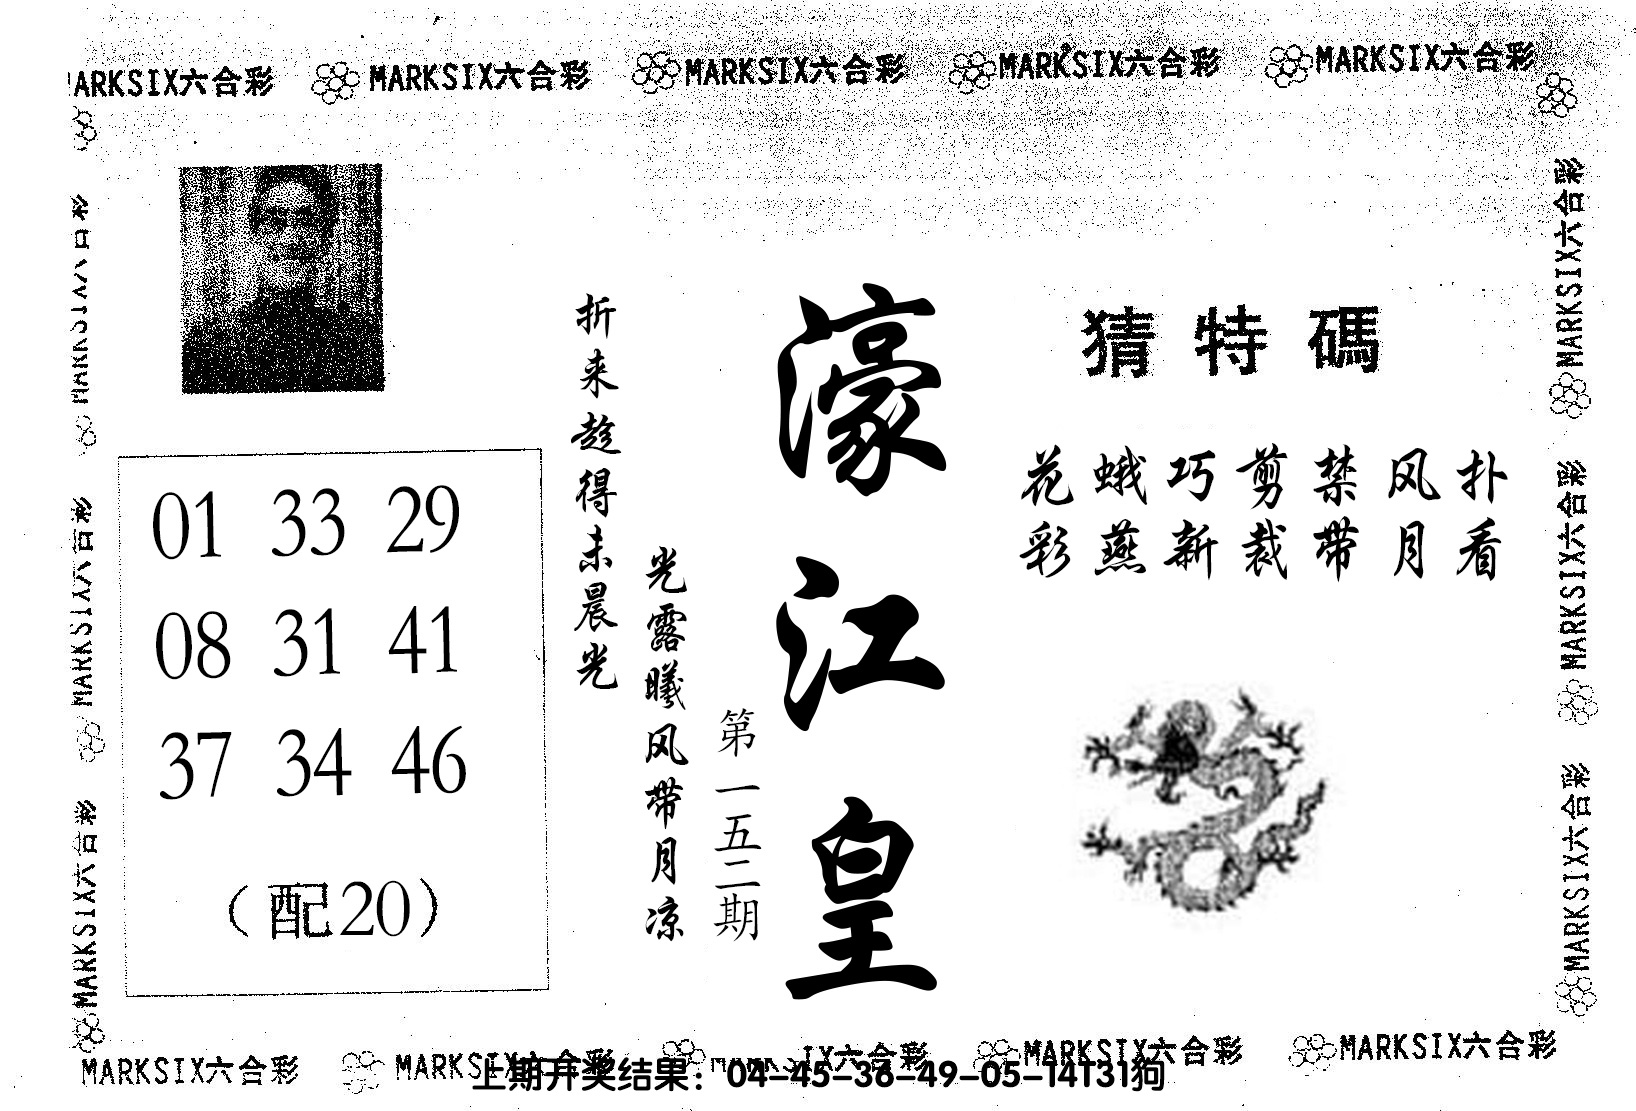 MARKSIX六合彩 MARKSIX六合彩 MARKSIX六合彩 MARKSIX六合彩
MARKSIX六合彩
猜特碼
花蛾巧剪禁风扑
彩燕新裁带月看
濠江皇
第一五二期
折来趁得未晨光
光露曦风带月凉
01 33 29
08 31 41
37 34 46
（配20）
MARKSIX六合彩
MARKSIX六合彩
MARKSIX六合彩
MARKSIX六合彩
MARKSIX六合彩
MARKSIX六合彩 MARKSIX六合彩 MARKSIX六合彩 MARKSIX六合彩
上期开奖结果：04-45-36-49-05-14T31狗